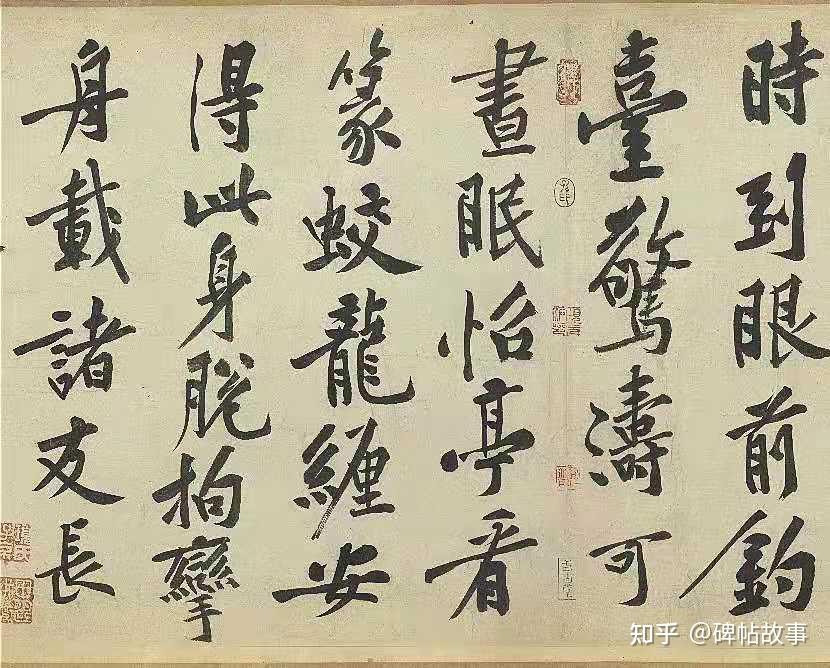 時到眼前釣
臺驚濤可
晝眠怡亭看
篆蛟龍纏安
得此身脫拘攣
舟載諸友長
知乎 @碑帖故事